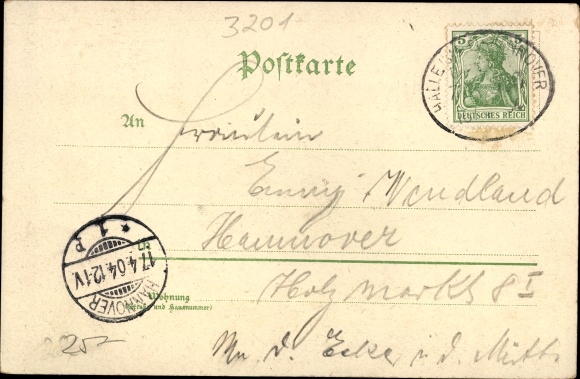 3201
Postkarte
DEUTSCHES REICH
HALLE HANNOVER
An
Fräulein
Emmy Wendland
Hannover
Holzmarkt 8 I
Wohnung
(Straße und Hausnummer)
HANNOVER
17.4.04.12-1V.
* 1 P
i. d. Mitte
25-